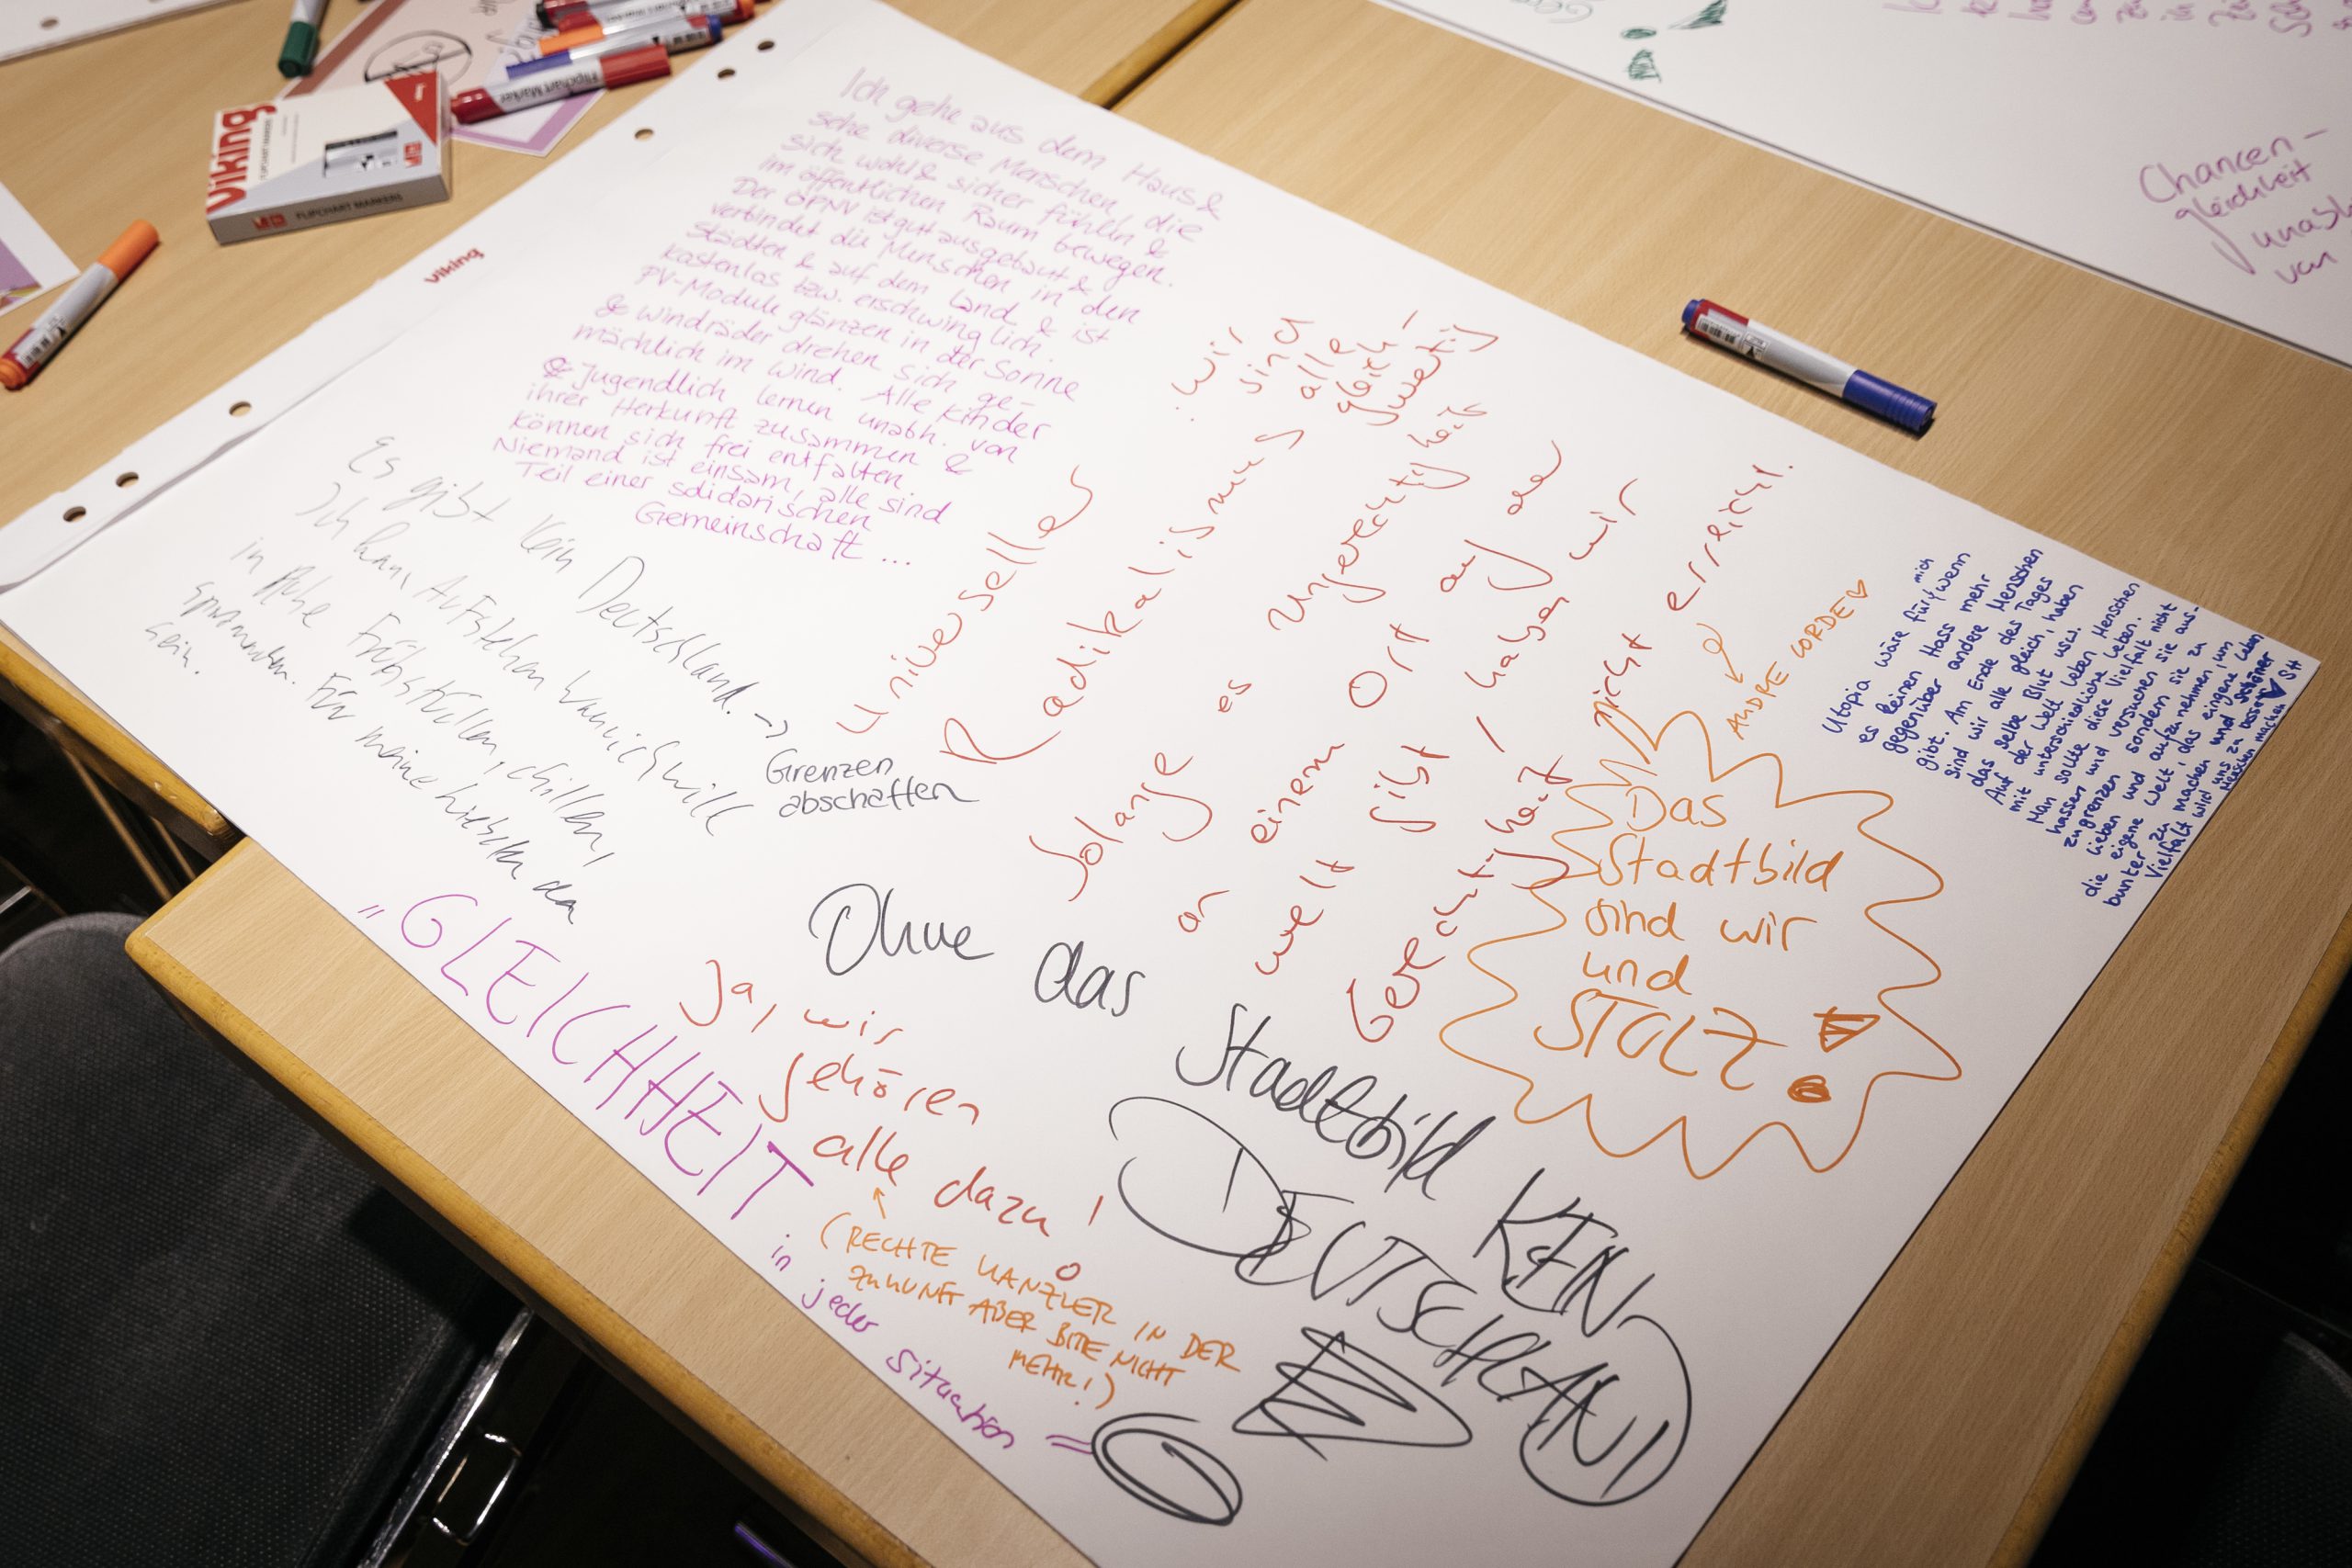 Viking
FLIPCHART MARKERS
Flipchart Marker
viking
Ich gehe aus dem Haus &
sehe diverse Menschen, die
sich wohl & sicher fühlen &
im öffentlichen Raum bewegen.
Der ÖPNV ist gut ausgebaut &
verbindet die Menschen in den
Städten & auf dem Land & ist
kostenlos bzw. erschwinglich.
PV-Module glänzen in der Sonne
& Windräder drehen sich ge-
mächlich im Wind. Alle Kinder
& Jugendlich lernen unabh. von
ihrer Herkunft zusammen &
können sich frei entfalten.
Niemand ist einsam, alle sind
Teil einer solidarischen
Gemeinschaft ...
Es gibt kein Deutschland. →
Grenzen
abschaffen
Ich kann Aufstehen wann ich will
in Ruhe Frühstücken, chillen,
Für meine liebsten da
sein.
universeller
Radikalismus
wir
sind
alle
gleich-
wertig
Solange es Ungerechtigkeit
an einem Ort auf der
welt gibt, haben wir
Gerechtigkeit nicht erreicht.
AUDRE LORDE ♡
Utopia wäre für mich wenn
es keinen Hass mehr
gegenüber andere Menschen
gibt. Am Ende des Tages
sind wir alle gleich, haben
das selbe Blut usw.
Auf der Welt leben Menschen
mit unterschiedliche Leben.
Man sollte diese Vielfalt nicht
hassen und versuchen sie aus-
zugrenzen sondern sie zu
lieben und aufzunehmen, um
die eigene Welt, das eigene Leben
bunter zu machen und schöner
Vielfalt wird uns zu besseren
Menschen machen
SH
Das
Stadtbild
sind wir
und
STOLZ!
Ohne das Stadtbild KEIN
DEUTSCHLAND!
"GLEICHHEIT
in jeder situation
Ja, wir
gehören
alle dazu!
(RECHTE KANZLER IN DER
ZUKUNFT ABER BITE NICHT
MEHR!)
Chancen-
gleichheit
von